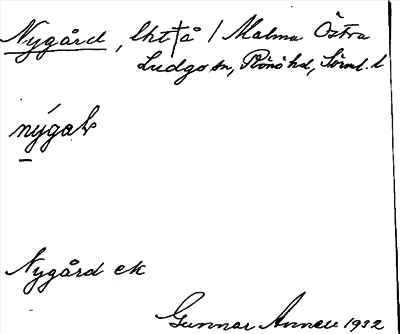 Nygård, lht † å / Malma Östra
Ludgo sn, Rönö hd, Sörml. l
nýgaƚs
Nygård ek
Gunnar 1932